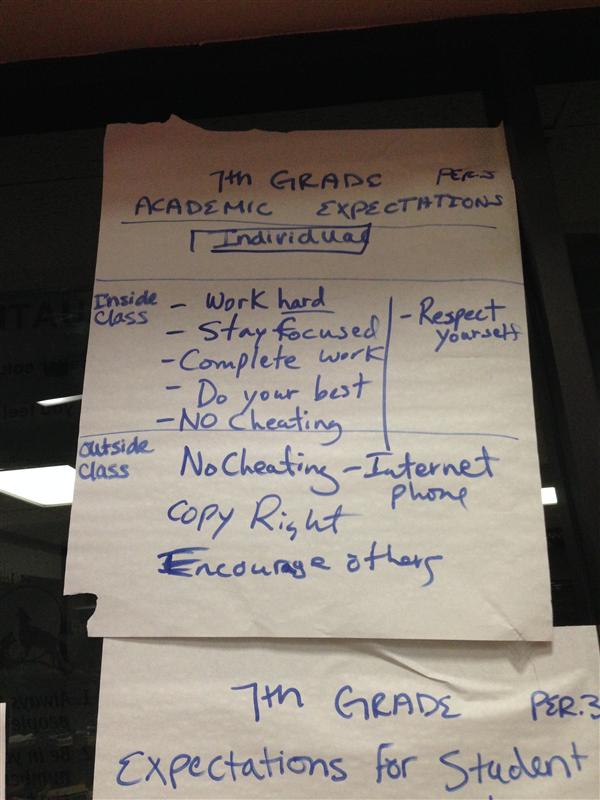 7th GRADE PER.3
ACADEMIC EXPECTATIONS
Individual
Inside
Class
- Work hard
- Stay focused
- Complete work
- Do your best
- NO Cheating
- Respect
yourself
outside
class
No Cheating - Internet
phone
COPY Right
Encourage others
7th GRADE PER.3
Expectations for Student